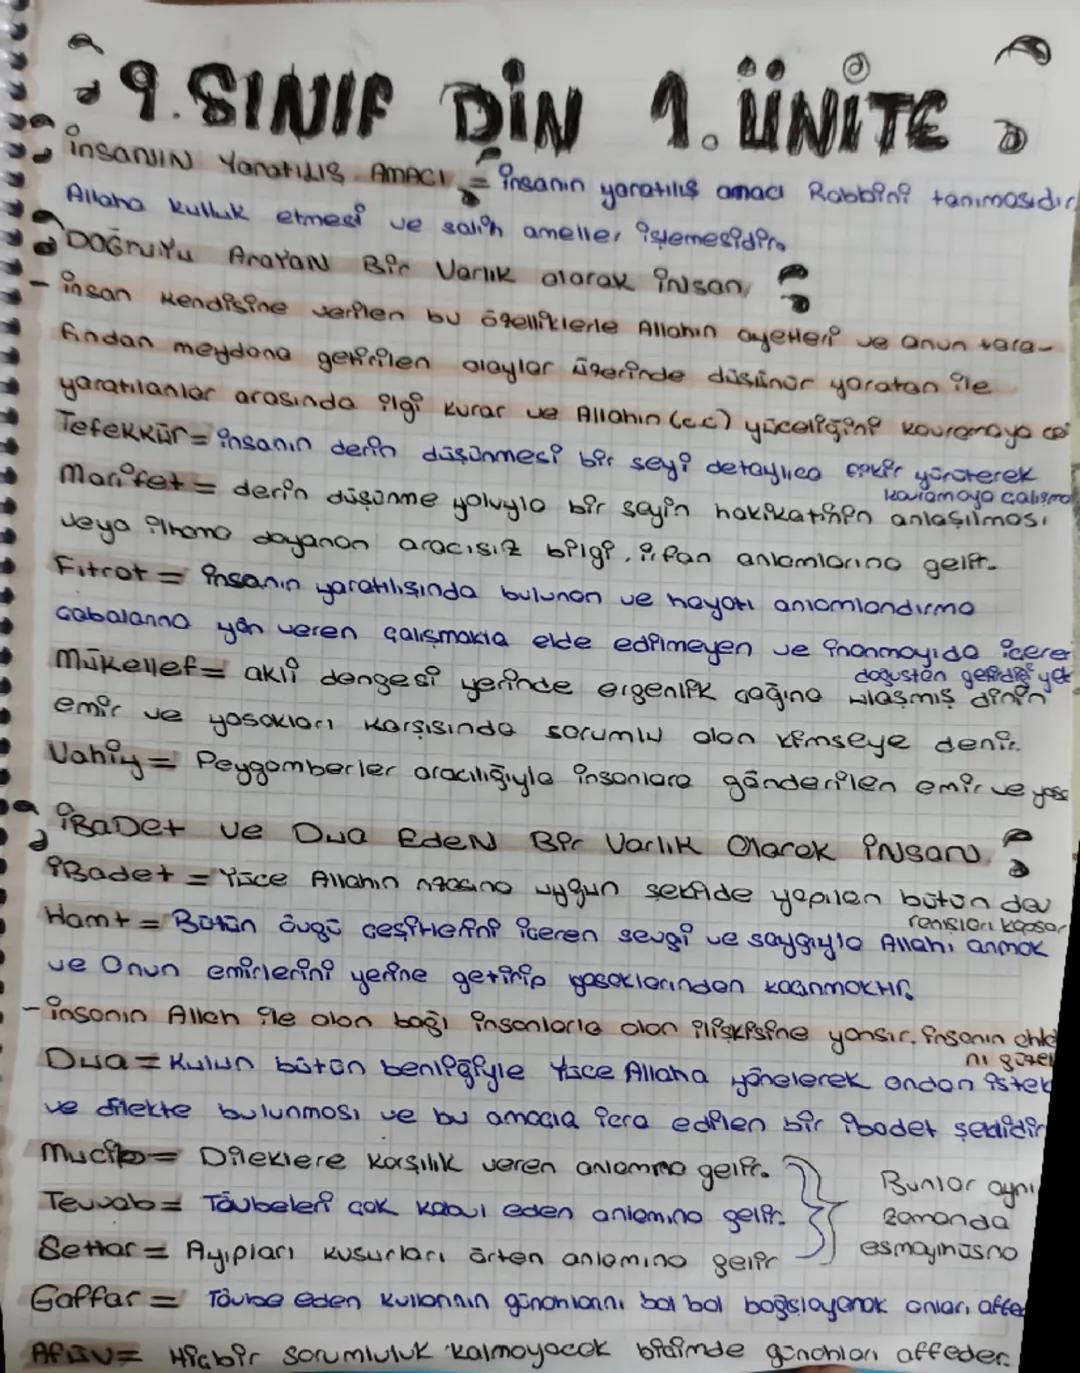 9. SINIF DİN 1. ÜNİTE
İNSANIN YARATILIŞ AMACI = İnsanın yaratılış amacı Rabbini tanımasıdır
Allaha kulluk etmesi ve salih ameller işlemesidir.
DOĞRUYU ARAYAN BİR VARLIK olarak İNSAN
- insan kendisine verilen bu özelliklerle Allahın ayetleri ve onun tara-
fından meydana getirilen olaylar üzerinde düşünür yaratan ile
yaratılanlar arasında ilgi kurar ve Allahın (c.c) yüceliğini kavramaya
Tefekkür = insanın derin düşünmesi bir şeyi detaylıca fikir yürüterek
kavramaya çalışma
Marifet = derin düşünme yoluyla bir şeyin hakikatinin anlaşılması
veya ilhama dayanan aracısız bilgi, irfan anlamlarına gelir.
Fıtrat = insanın yaratılışında bulunan ve hayatı anlamlandırma
çabalarına yön veren çalışmakla elde edilmeyen ve inanmayıda içeren
doğuştan getirdiği
Mükellef = akli dengesi yerinde ergenlik çağına ulaşmış dinin
emir ve yasakları karşısında sorumlu olan kimseye denir.
Vahiy = Peygamberler aracılığıyla insanlara gönderilen emir ve
İBADET ve DUA EDEN BİR VARLIK OLARAK İNSAN
İBadet = Yüce Allahın rızasına uygun şekilde yapılan bütün dav
ranışları kapsar
Hamt = Bütün övgü çeşitlerini içeren sevgi ve saygıyla Allahı anmak
ve Onun emirlerini yerine getirip yasaklarından kaçınmaktır.
- insanın Allah ile olan bağı insanlarla olan ilişkisine yansır. insanın ahla
nı güzel
Dua = Kulun bütün benliğiyle Yüce Allaha yönelerek ondan istek
ve dilekte bulunması ve bu amaçla icra edilen bir ibadet şeklidir
Mucib = Dileklere karşılık veren anlamına gelir.
Bunlar aynı
Tevvab = Tövbeleri çok kabul eden anlamına gelir.
zamanda
Settar = Ayıpları kusurları örten anlamına gelir
esmayıhüsna
Gaffar = Tövbe eden kullarının günahlarını bol bol bağışlayarak onları
Afüv = Hiçbir sorumluluk kalmayacak biçimde günahları affeder.